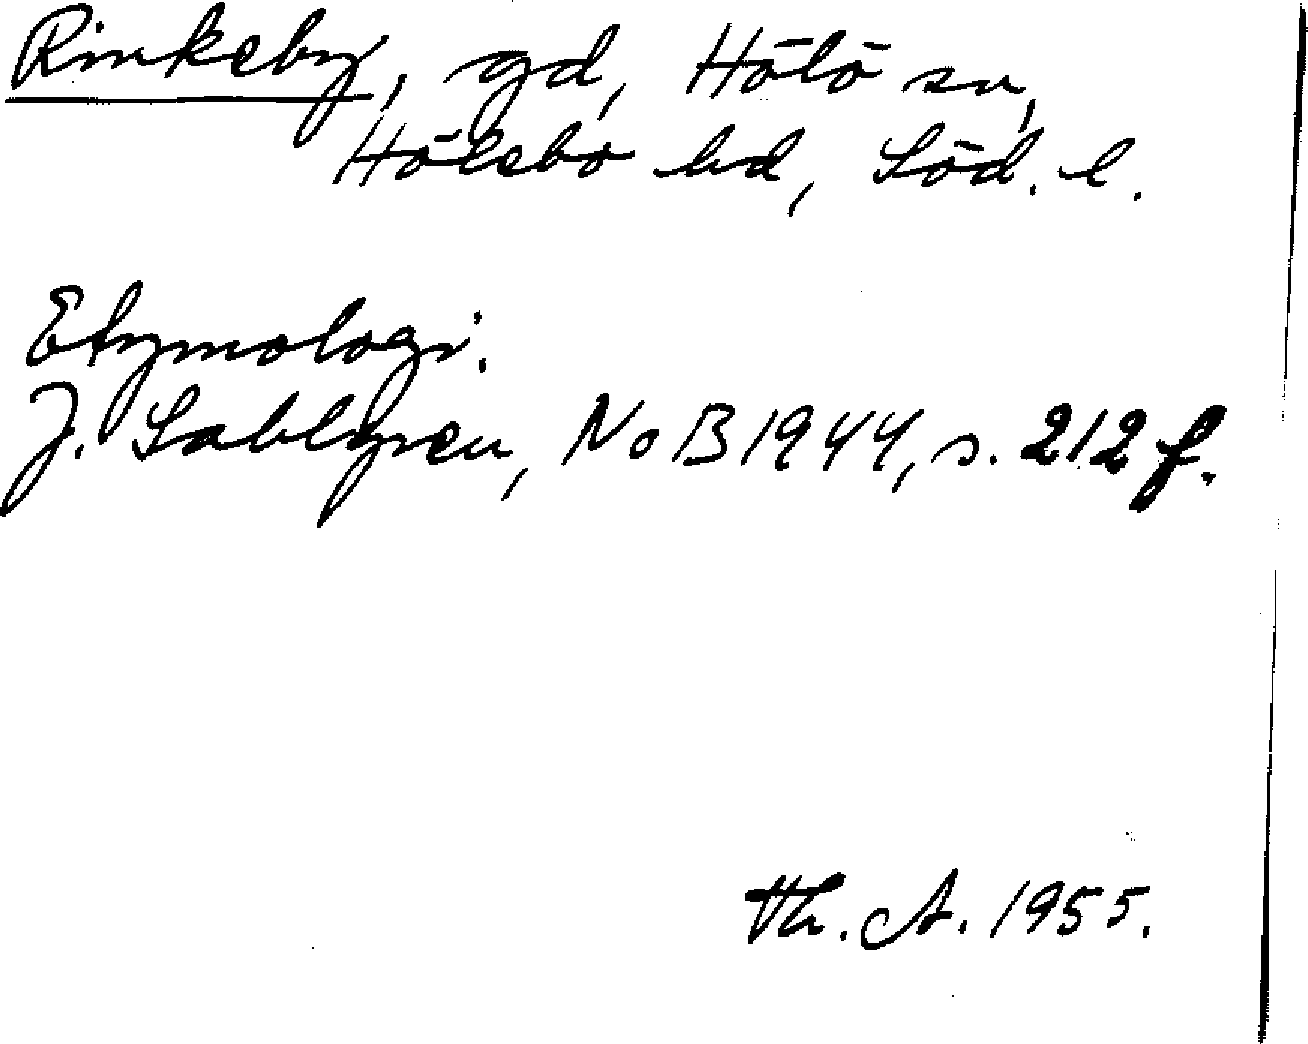 Rinkeby, gd, Hölö sn,
Hölebo hd, Söd. l.
Etymologi.
J. Sahlgren, NoB 1944, s. 212 f.
Th. A. 1955.